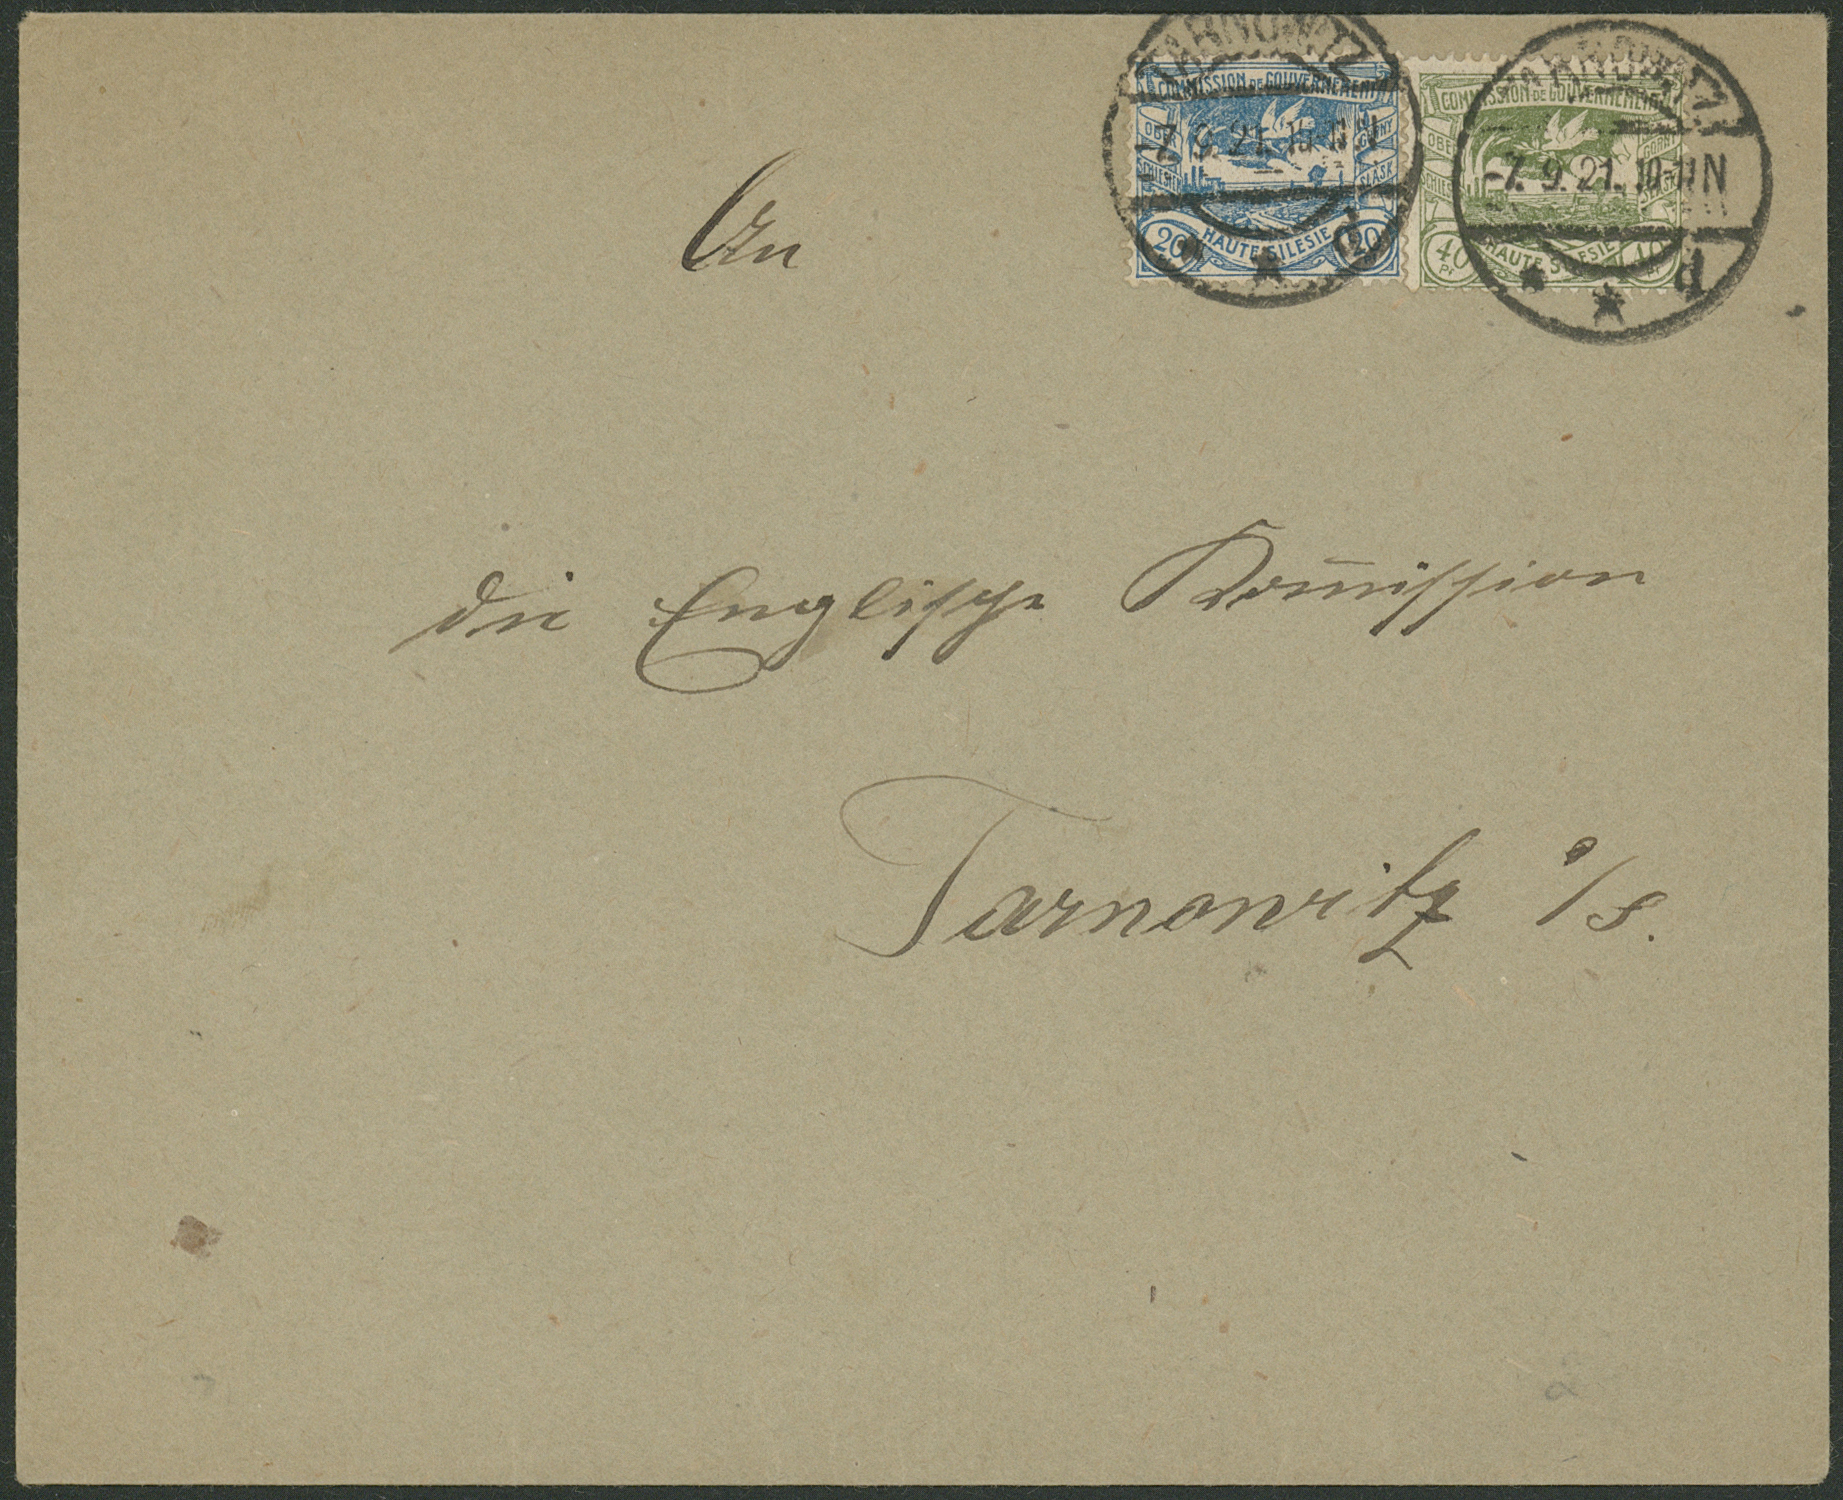 TARNOWITZ
-7. 9. 21. 10-11 N
d
COMMISSION DE GOUVERNEMENT
OBER SCHLESIEN
GÓRNY ŚLĄSK
20 HAUTE SILESIE 20
TARNOWITZ
-7. 9. 21. 10-11 N
d
COMMISSION DE GOUVERNEMENT
OBER SCHLESIEN
GÓRNY ŚLĄSK
40 Pf HAUTE SILESIE 40
An
die Englische Kom̅ission
Tarnowitz o/s.